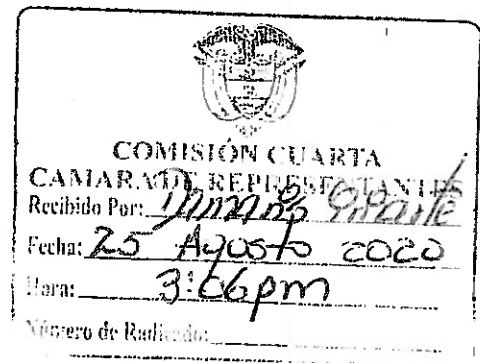 COMISIÓN CUARTA
CAMARA DE REPRESENTANTES
Recibido Por:
Fecha: 25 Agosto 2020
Hora: 3:06pm
Número de Radicado: